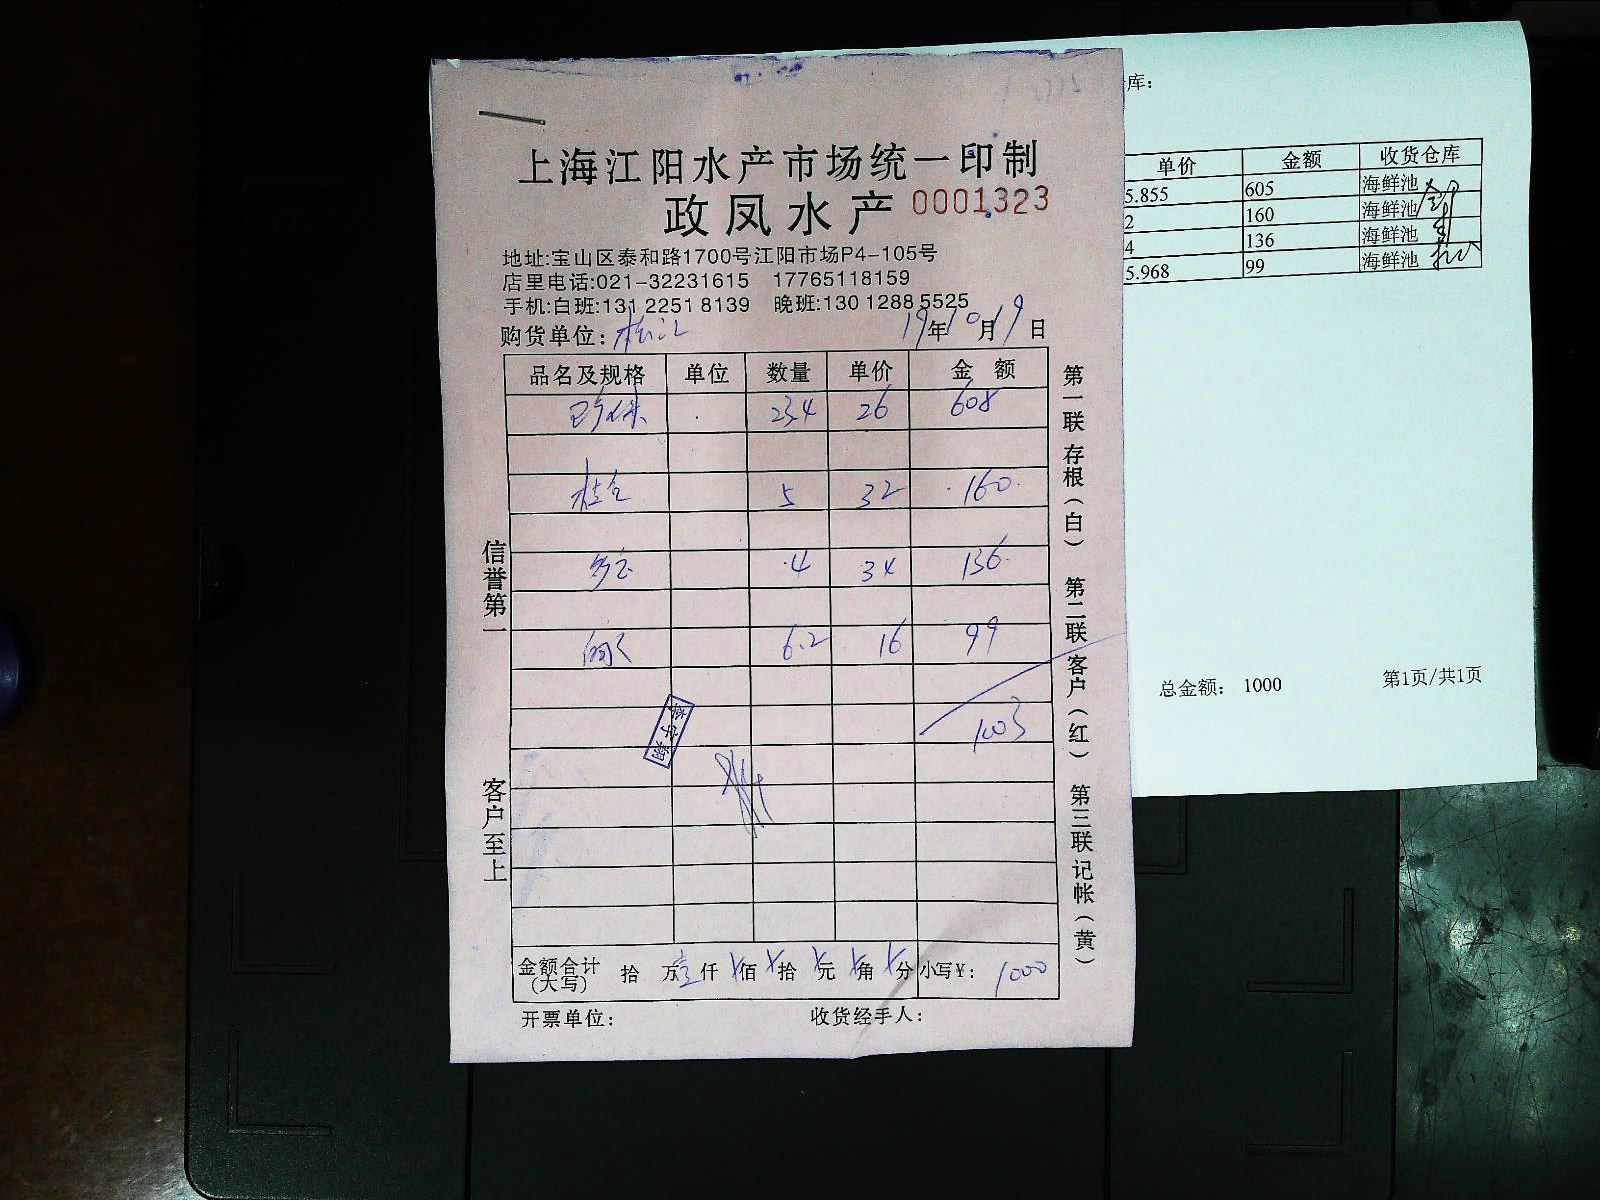 上海江阳水产市场统一印制
政凤水产 0001323
地址:宝山区泰和路1700号江阳市场P4-105号
店里电话:021-32231615 17765118159
手机:白班:131 2251 8139 晚班:130 1288 5525
购货单位: 松江 19年10月19日
品名及规格 单位 数量 单价 金额
23.4 26 608
桂鱼 5 32 160
多宝 4 34 136
6.2 16 99
1003
金额合计(大写) 拾 万 壹仟 佰 拾 元 角 分 小写¥: 1000
开票单位: 收货经手人:
信誉第一
客户至上
第一联 存根(白) 第二联 客户(红) 第三联 记帐(黄)
库:
单价 金额 收货仓库
5.855 605 海鲜池
2 160 海鲜池
4 136 海鲜池
5.968 99 海鲜池
总金额: 1000 第1页/共1页